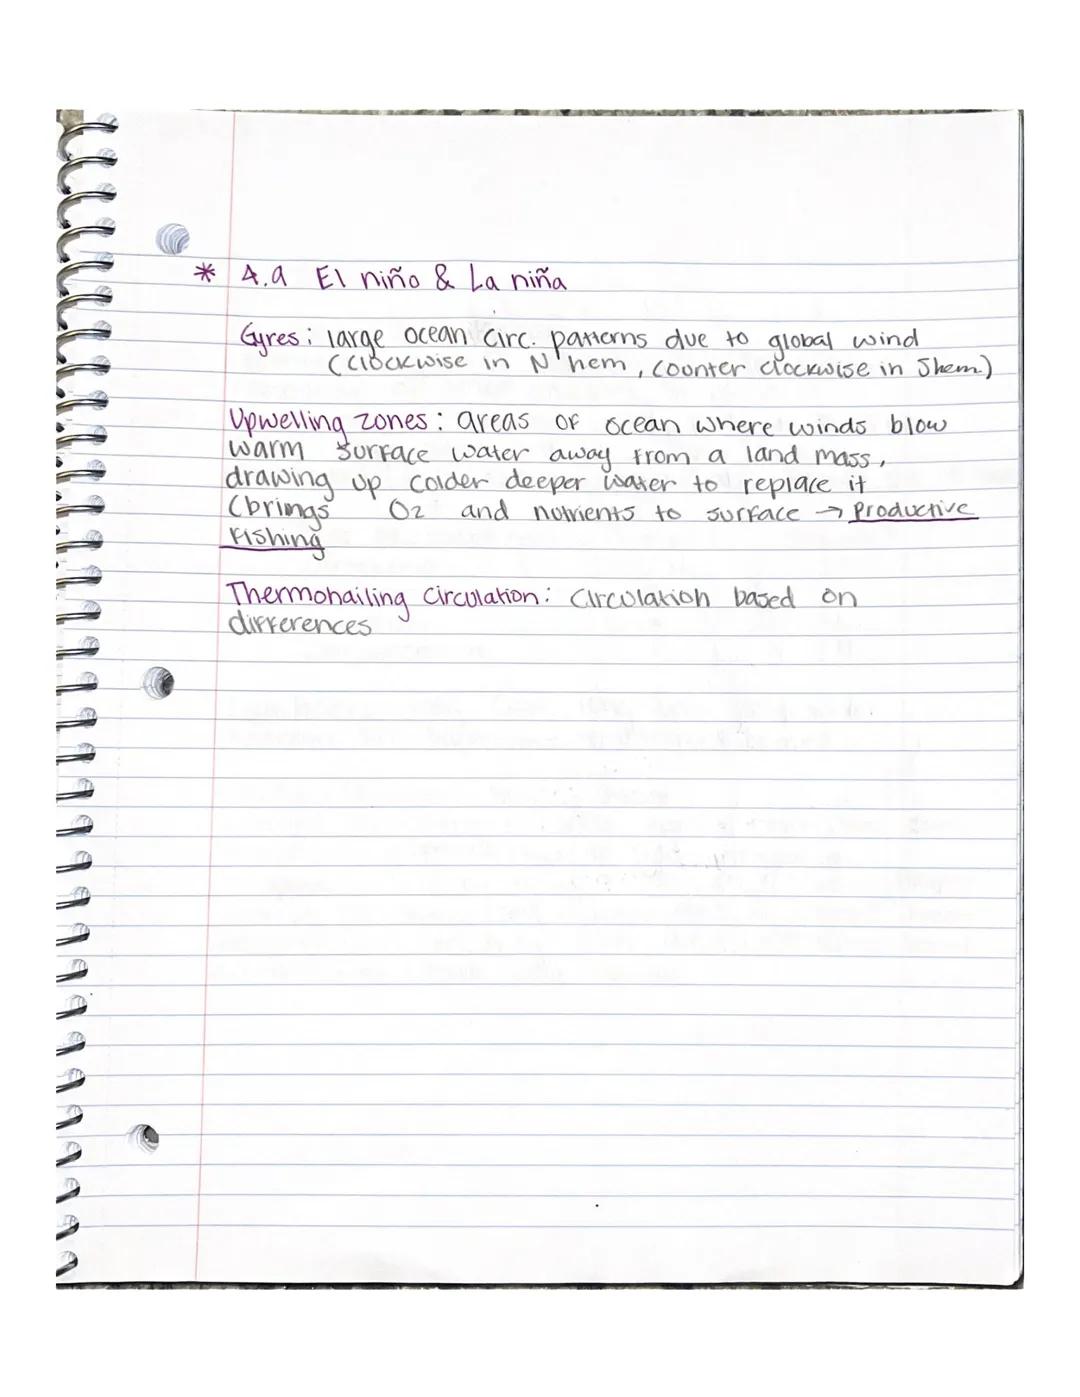 * 4.a El niño & La niña
Gyres: large ocean circ. patterns due to global wind
(clockwise in N hem, counter clockwise in S hem)
Upwelling zones: areas of ocean where winds blow
warm surface water away from a land mass,
drawing up colder deeper water to replace it
(brings O2 and nutrients to surface → Productive
Fishing
Thermohailing circulation: circulation based on
differences